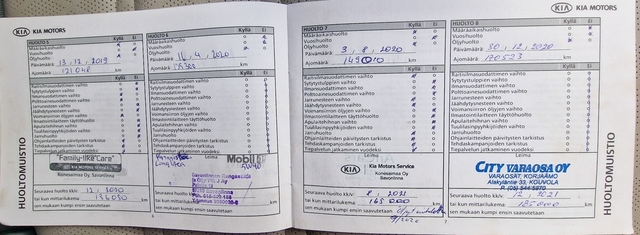 KIA MOTORS
HUOLTO 5
Kyllä Ei
Määräaikaishuolto
Vuosihuolto
Öljyhuolto
Päivämäärä 13, 12, 2019
Ajomäärä km
Raitisilmasuodattimen vaihto
Sytytystulppien vaihto
Ilmansuodattimen vaihto
Polttoainesuodattimen vaihto
Jarrunesteen vaihto
Jäähdytysnesteen vaihto
Voimansiirron öljyjen vaihto
Ilmastointilaitteen täyttöhuolto
Apulaitehihnan vaihto
Tuulilasinpyyhkijöiden vaihto
Jakohihnan vaihto
Ohjainlaitteiden päivitysten tarkistus
Tehdaskampanjoiden tarkistus
Tiepalvelun jatkaminen vuodeksi
"Family-like Care"
Konesamoa Oy
Savonlinna
Seuraava huolto kk/v. 12, 2020
tai kun mittarilukema km
sen mukaan kumpi ensin saavutetaan
HUOLTOMUISTIO
HUOLTO 6
Kyllä Ei
Määräaikaishuolto
Vuosihuolto
Öljyhuolto
Päivämäärä 4, 2020
Ajomäärä km
Raitisilmasuodattimen vaihto
Sytytystulppien vaihto
Ilmansuodattimen vaihto
Polttoainesuodattimen vaihto
Jarrunesteen vaihto
Jäähdytysnesteen vaihto
Voimansiirron öljyjen vaihto
Ilmastointilaitteen täyttöhuolto
Apulaitehihnan vaihto
Tuulilasinpyyhkijöiden vaihto
Jakohihnan vaihto
Ohjainlaitteiden päivitysten tarkistus
Tehdaskampanjoiden tarkistus
Tiepalvelun jatkaminen vuodeksi
Leima
Mobil
Seuraava huolto kk/v.
tai kun mittarilukema
sen mukaan kumpi ensin saavutetaan
HUOLTO 7
Kyllä Ei
Määräaikaishuolto
Vuosihuolto
Öljyhuolto
Päivämäärä 3, 8, 2020
Ajomäärä km
Raitisilmasuodattimen vaihto
Sytytystulppien vaihto
Ilmansuodattimen vaihto
Polttoainesuodattimen vaihto
Jarrunesteen vaihto
Jäähdytysnesteen vaihto
Voimansiirron öljyjen vaihto
Ilmastointilaitteen täyttöhuolto
Apulaitehihnan vaihto
Tuulilasinpyyhkijöiden vaihto
Jakohihnan vaihto
Ohjainlaitteiden päivitysten tarkistus
Tehdaskampanjoiden tarkistus
Tiepalvelun jatkaminen vuodeksi
Leima
KIA Kia Motors Service
Konesamoa Oy
Savonlinna
Seuraava huolto kk/v. 8, 2021
tai kun mittarilukema 165 000 km
sen mukaan kumpi ensin saavutetaan
7
KIA MOTORS
HUOLTO 8
Kyllä Ei
Määräaikaishuolto
Vuosihuolto
Öljyhuolto
Päivämäärä 30, 12, 2020
Ajomäärä km
Raitisilmasuodattimen vaihto
Sytytystulppien vaihto
Ilmansuodattimen vaihto
Polttoainesuodattimen vaihto
Jarrunesteen vaihto
Jäähdytysnesteen vaihto
Voimansiirron öljyjen vaihto
Ilmastointilaitteen täyttöhuolto
Apulaitehihnan vaihto
Tuulilasinpyyhkijöiden vaihto
Jakohihnan vaihto
Ohjainlaitteiden päivitysten tarkistus
Tehdaskampanjoiden tarkistus
Tiepalvelun jatkaminen vuodeksi
Leima
CITY VARAOSA OY
VARAOSAT, KORJAAMO
Alakyläntie 33, KOUVOLA
Seuraava huolto kk/v. 12, 2021
tai kun mittarilukema 185 000 km
sen mukaan kumpi ensin saavutetaan
HUOLTOMUISTIO